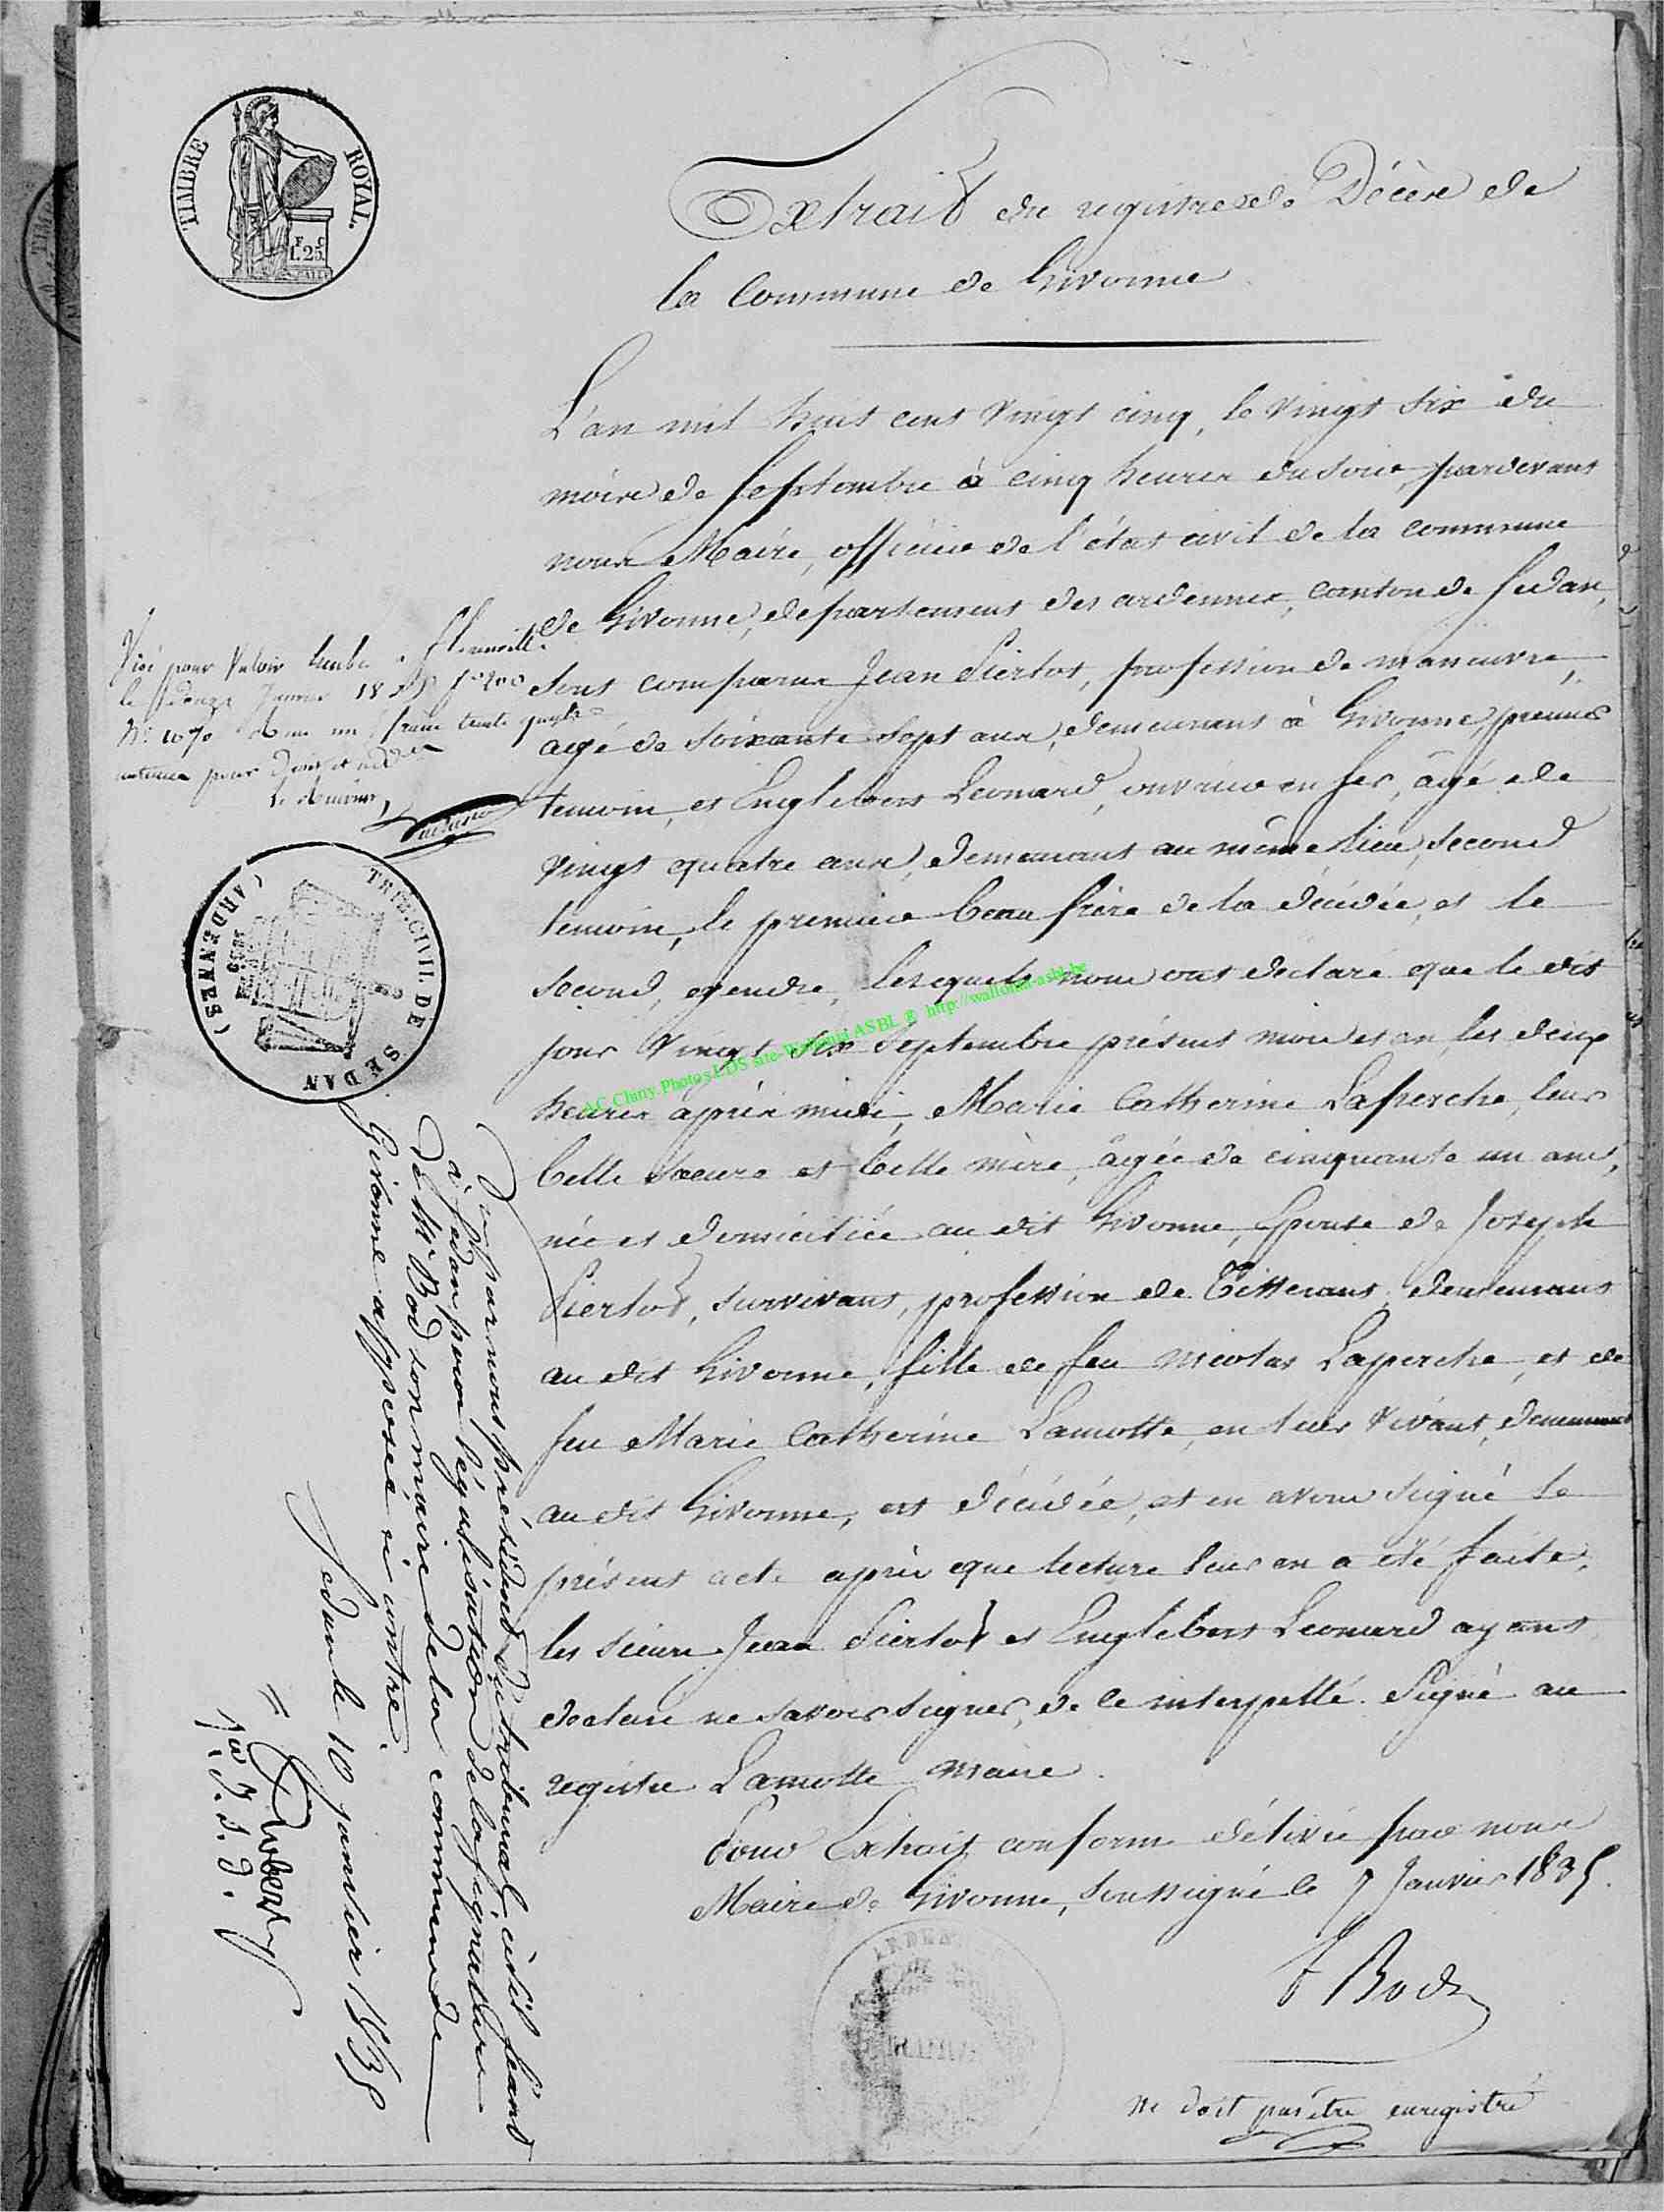 TIMBRE ROYAL
F C
1.25
Extrait du registre de Décès de
la Commune de Givonne
L'an mil huit cent vingt cinq, le vingt six du
mois de Septembre à cinq heures du soir, pardevant
nous Maire, officier de l'état civil de la commune
de Givonne, département des ardennes, canton de Sedan,
sont comparus Jean Piertot, profession de manœuvre,
agé de soixante sept ans, demeurant à Givonne, premier
temoin, et Englebert Leonard, ouvrier en fer, âgé de
vingt quatre ans, demeurant au même lieu, second
temoin, le premier beau frère de la décédée, et le
second, gendre, lesquels nous ont déclaré que le dit
jour vingt six Septembre présent mois et an, les deux
heures après midi, Marie Catherine Laperche, leur
belle sœure et belle mère, âgée de cinquante un ans,
née et domiciliée au dit Givonne, Epouse de Joseph
Piertot, survivant, profession de Tisserant, demeurant
au dit Givonne, fille de feu nicolas Laperche, et de
feu Marie Catherine Lamotte, en leur vivant, demeurant
au dit Givonne, est décédée, et en avons signé le
présent acte après que lecture leur en a été faite,
les sieurs Jean Piertot et Englebert Leonard ayant
déclaré ne savoir signer, de ce interpellé. Signé au
registre Lamotte maire.
Pour Extrait conforme délivré par nous
Maire de Givonne, soussigné le 7 Janvier 1835.
F Bod
ne doit pas être enregistré
Visé pour valoir timbre
Janvier 18
N° 1070 un franc trente quatre
centimes pour
TRIB. CIVIL DE SEDAN
(ARDENNES)
Vu par nous président du tribunal civil séant
à Sedan pour légalisation de la signature
de Mr Bod son maire de la commune de
Givonne apposée ci contre.
Sedan le 10 janvier 1835
AC Chiny Photos LDS site-Wallonia ASBL ® http://wallonia-asbl.be